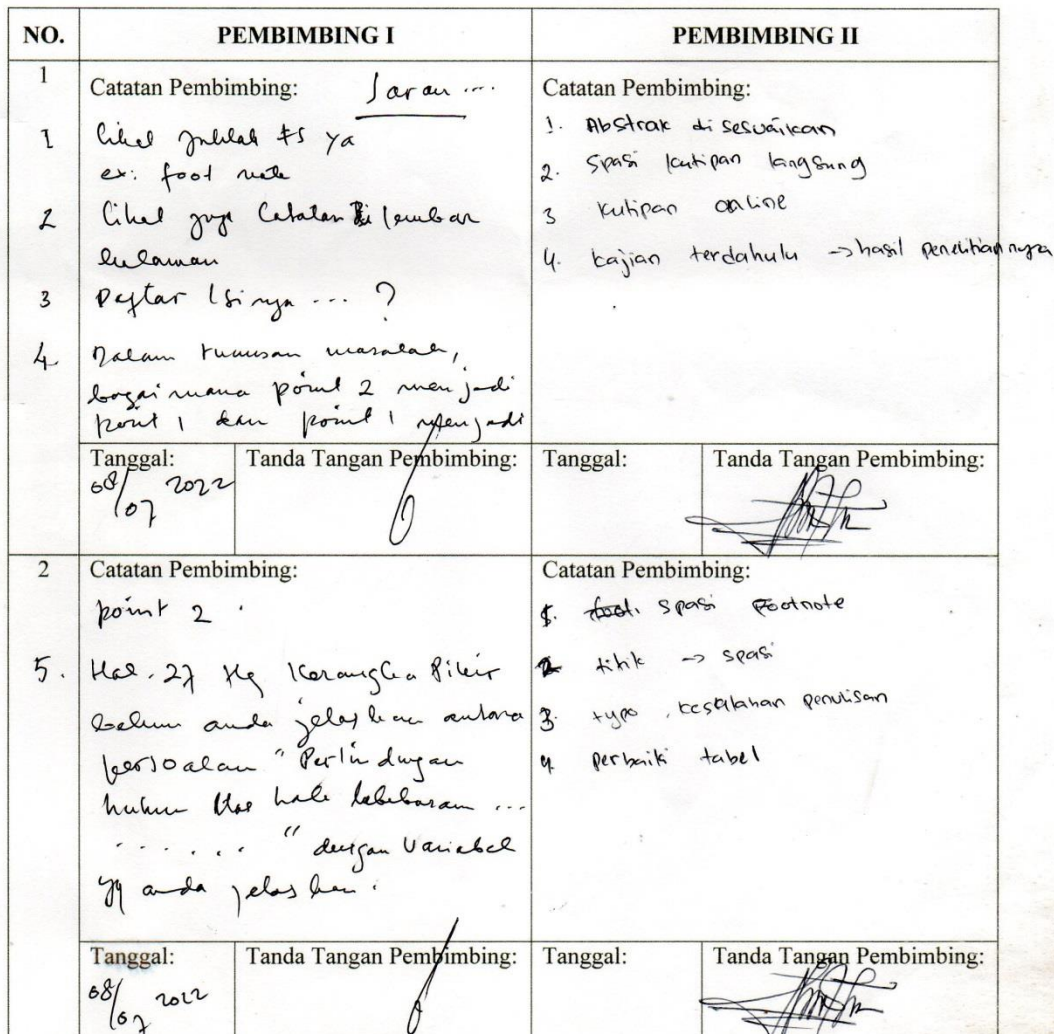 NO. PEMBIMBING I PEMBIMBING II
1
Catatan Pembimbing: Saran ....
1 Lihat ya
ex: foot note
2 Lihat juga Catatan di lembar
halaman
3 Daftar Isinya ... ?
4. Dalam rumusan masalah,
bagaimana point 2 menjadi
point 1 dan point 1 menjadi
Catatan Pembimbing:
1. Abstrak disesuaikan
2. Spasi kutipan langsung
3 kutipan online
4. kajian terdahulu -> hasil penelitiannya
Tanggal: Tanda Tangan Pembimbing:
08/07 2022
Tanggal: Tanda Tangan Pembimbing:
2
Catatan Pembimbing:
point 2.
5. Hal. 27 ttg Kerangka Pikir
belum anda jelaskan antara
persoalan "Perlindungan
hukum hak kebebasan ...
...... " dengan Variabel
yg anda jelaskan.
Catatan Pembimbing:
1. foot. spasi Footnote
2 titik -> spasi
3. typo, kesalahan penulisan
4 perbaiki tabel
Tanggal: Tanda Tangan Pembimbing:
08/07 2022
Tanggal: Tanda Tangan Pembimbing: